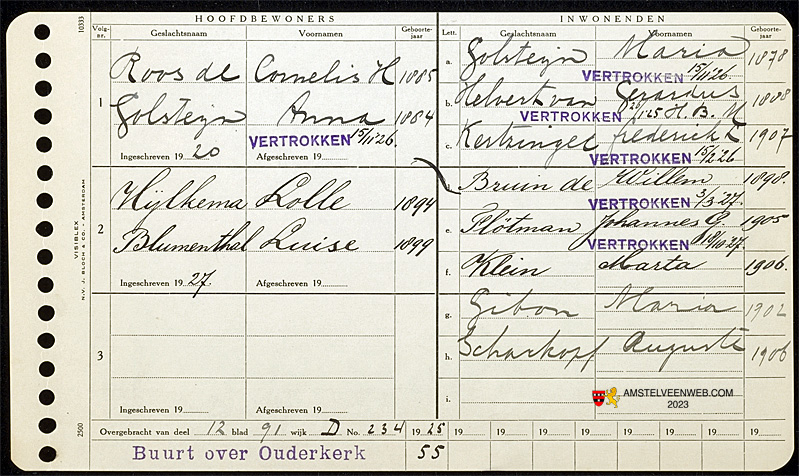 HOOFDBEWONERS
Volg-nr. Geslachtsnaam Voornamen Geboorte-jaar
1
Roos de Cornelis H. 1885
Golsteijn Anna 1884
VERTROKKEN 15/11 '26.
Ingeschreven 19 20 Afgeschreven 19
2
Hijlkema Lolle 1894
Blumenthal Luise 1899
Ingeschreven 19 27 Afgeschreven 19
3
Ingeschreven 19 Afgeschreven 19
INWONENDEN
Lett. Geslachtsnaam Voornamen Geboorte-jaar
a. Golsteijn Maria 1878
VERTROKKEN 15/11 '26.
b. Helvert van Gerardus
VERTROKKEN H. B. M
c. Frederick 1907
VERTROKKEN 15/2 '26
Bruin de Willem 1898.
VERTROKKEN 3/3 '27.
e. Flötman Johannes G. 1905
VERTROKKEN 18/10 '27.
f. Klein Marta 1906.
g. Gibon Maria 1902
h. Scharkopf Auguste 1906
i.
AMSTELVEENWEB.COM
2023
Overgebracht van deel 12 blad 91 wijk D No. 234 19 25 19 19 19 19 19 19 19 19
Buurt over Ouderkerk 55
10333
VISIBLEX
N.V. J. BLOCH & CO. AMSTERDAM
2500